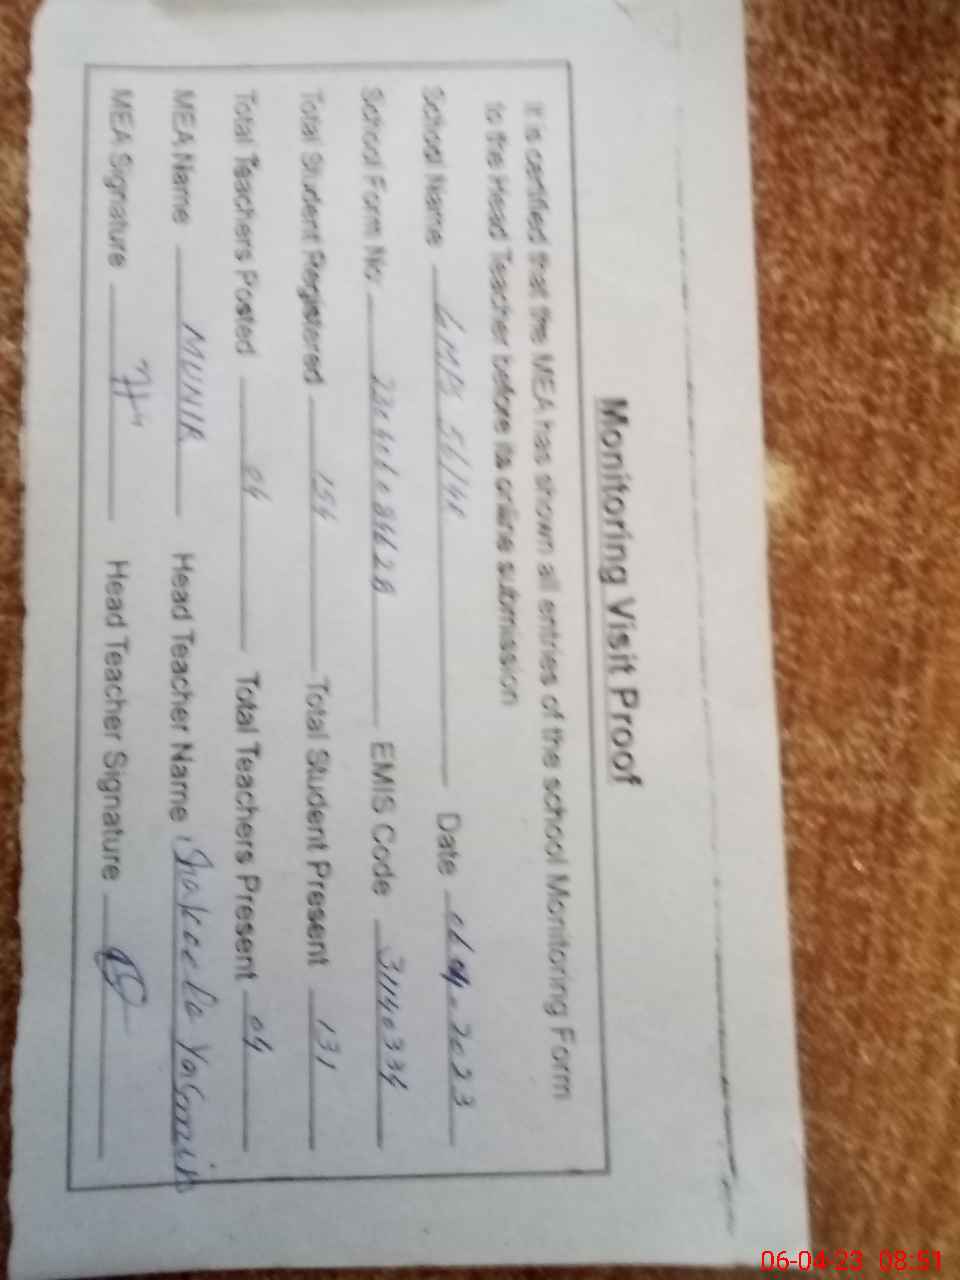 Monitoring Visit Proof
It is certified that the MEA has shown all entries of the school Monitoring Form
to the Head Teacher before its online submission
School Name Date 06.04.2023
School Form No. EMIS Code 31140334
Total Student Registered 154 Total Student Present 131
Total Teachers Posted 04 Total Teachers Present 04
MEA Name MUNIR Head Teacher Name Shakeela Yasmin
MEA Signature Head Teacher Signature
06-04-23 08:51